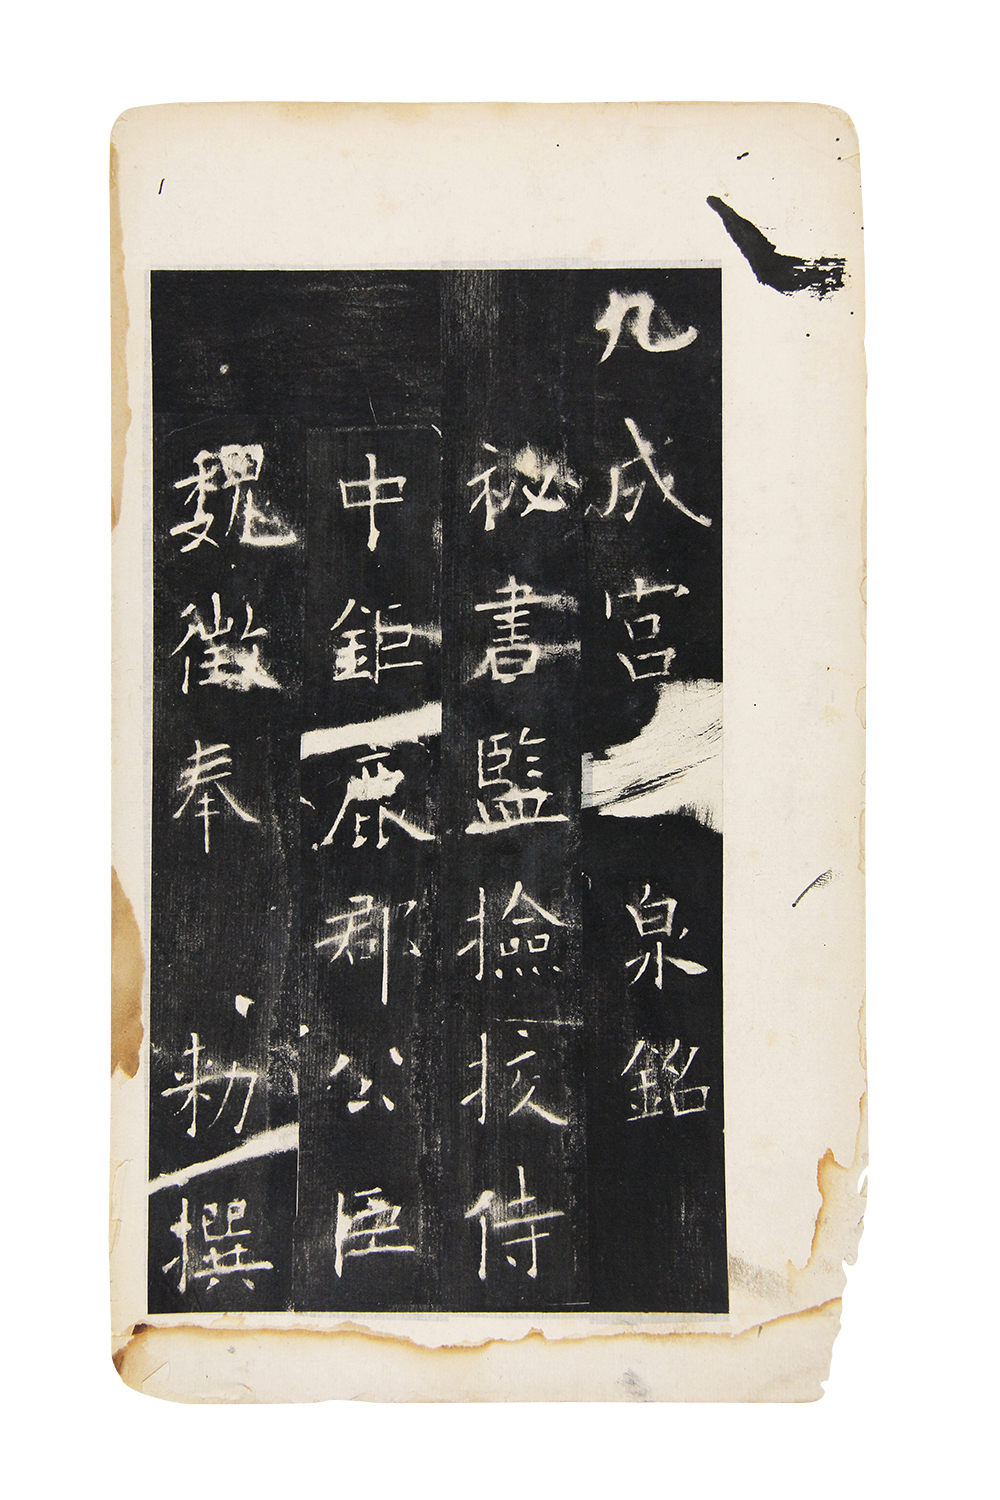 九成宮泉銘
祕書監撿挍侍
中鉅鹿郡公臣
魏徵奉勑撰